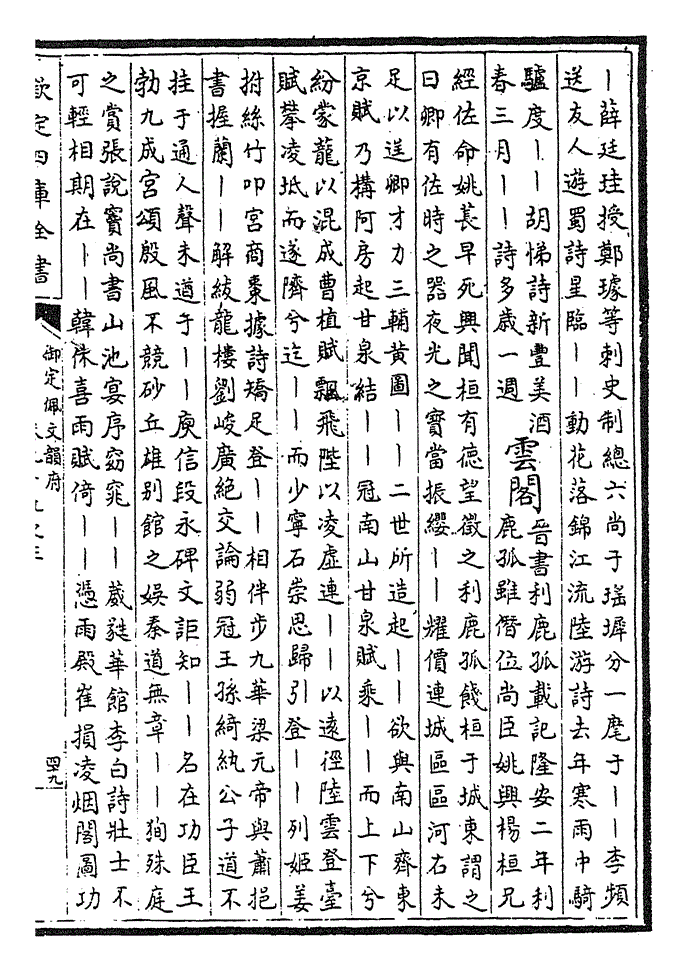 丨薛廷珪授鄭璩等刺史制總六尚于瑶墀分一麾于丨丨李頻
送友人遊蜀詩星臨丨丨動花落錦江流陸游詩去年寒雨中騎
驢度丨丨胡悌詩新豐美酒
春三月丨丨詩多歲一週
雲閣
晉書利鹿孤載記隆安二年利
鹿孤雖僭位尚臣姚興楊桓兄
經佐命姚萇早死興聞桓有德望徵之利鹿孤餞桓于城東謂之
曰卿有佐時之器夜光之寶當振纓丨丨耀價連城區區河右未
足以逞卿才力三輔黄圖丨丨二世所造起丨丨欲與南山齊東
京賦乃構阿房起甘泉結丨丨冠南山甘泉賦乘丨丨而上下兮
紛蒙龍以混成曹植賦飄飛陛以凌虚連丨丨以遠徑陸雲登臺
賦攀凌坻而遂隮兮迄丨丨而少寧石崇思歸引登丨丨列姬姜
拊絲竹叩宮商棗據詩矯足登丨丨相伴步九華梁元帝與蕭挹
書握蘭丨丨解紱龍樓劉峻廣絶交論弱冠王孫綺紈公子道不
挂于通人聲未遒于丨丨庾信段永碑文詎知丨丨名在功臣王
勃九成宮頌殷風不競砂丘雄别館之娱秦道無章丨丨狥殊庭
之賞張說竇尚書山池宴序窈窕丨丨葳蕤華館李白詩壯士不
可輕相期在丨丨韓侏喜雨賦倚丨丨憑雨殿崔損凌烟閣圖功
欽定四庫全書
御定佩文韻府
四九